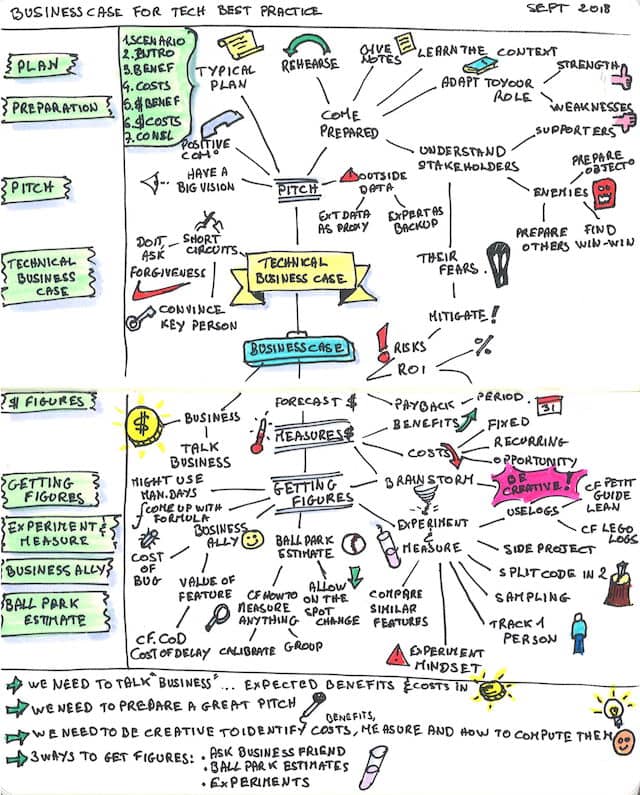 BUSINESS CASE FOR TECH BEST PRACTICE
SEPT 2018
PLAN
PREPARATION
PITCH
TECHNICAL
BUSINESS
CASE
$ FIGURES
GETTING
FIGURES
EXPERIMENT &
MEASURE
BUSINESS ALLY
BALL PARK
ESTIMATE
1. SCENARIO
2. INTRO
3. BENEF
4. COSTS
5. $ BENEF
6. $ COSTS
7. CONSL
TYPICAL
PLAN
REHEARSE
GIVE
NOTES
LEARN THE CONTEXT
ADAPT TO YOUR
ROLE
STRENGTH
WEAKNESSES
COME
PREPARED
SUPPORTERS
UNDERSTAND
STAKEHOLDERS
PREPARE
OBJECTO
ENEMIES
PREPARE
OTHERS
FIND
WIN-WIN
POSITIVE
COM°
HAVE A
BIG VISION
PITCH
OUTSIDE
DATA
EXT DATA
AS PROXY
EXPERT AS
BACKUP
THEIR
FEARS
MITIGATE!
DO IT,
ASK
FORGIVENESS
SHORT
CIRCUITS
CONVINCE
KEY PERSON
TECHNICAL
BUSINESS CASE
BUSINESS CASE
RISKS
ROI
%
$
BUSINESS
TALK
BUSINESS
FORECAST $
MEASURES $
PAYBACK
PERIOD
31
BENEFITS
COSTS
FIXED
RECURRING
OPPORTUNITY
MIGHT USE
MAN.DAYS
COME UP WITH
FORMULA
GETTING
FIGURES
BRAINSTORM
BE
CREATIVE!
CF PETIT
GUIDE
LEAN
USE LOGS
CF LEGO
LOGS
COST
OF
BUG
BUSINESS
ALLY
VALUE OF
FEATURE
CF. COD
COST OF DELAY
BALL PARK
ESTIMATE
CF HOW TO
MEASURE
ANYTHING
ALLOW
ON THE
SPOT
CHANGE
CALIBRATE
GROUP
EXPERIMENT
&
MEASURE
SIDE PROJECT
SPLIT CODE IN 2
SAMPLING
TRACK 1
PERSON
COMPARE
SIMILAR
FEATURES
EXPERIMENT
MINDSET
WE NEED TO TALK "BUSINESS"... EXPECTED BENEFITS & COSTS IN
WE NEED TO PREPARE A GREAT PITCH
BENEFITS,
WE NEED TO BE CREATIVE TO IDENTIFY COSTS, MEASURE AND HOW TO COMPUTE THEM
3 WAYS TO GET FIGURES: • ASK BUSINESS FRIEND
• BALL PARK ESTIMATES
• EXPERIMENTS